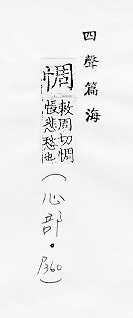 四聲篇海
惆
敕周切惆
悵悲愁也
(心部•P360)